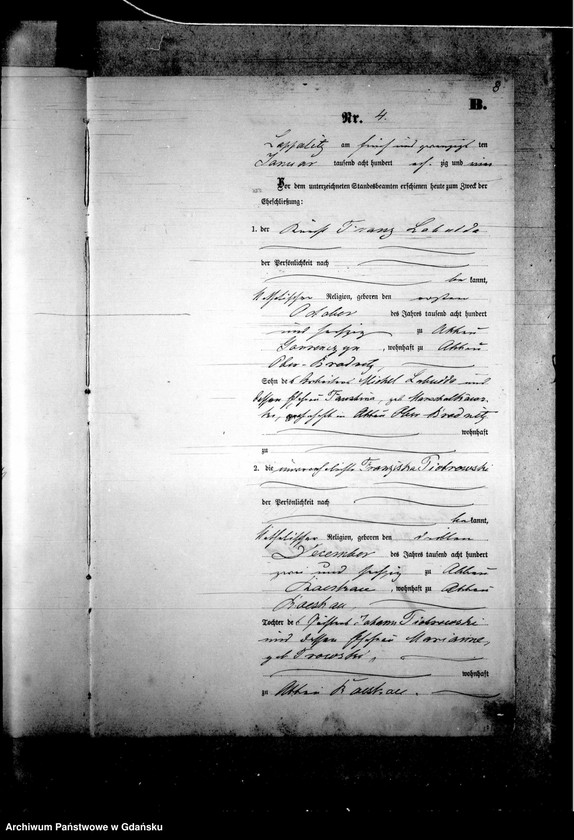 8
B.
Nr. 4.
Lappalitz am fünf und zwanzig ten
Januar tausend acht hundert acht zig und
Vor dem unterzeichneten Standesbeamten erschienen heute zum Zweck der
Eheschließung:
1. der Knecht Franz Labudda
der Persönlichkeit nach
be kannt,
katholischer Religion, geboren den ersten
October des Jahres tausend acht hundert
und sechzig zu Abbau
, wohnhaft zu Abbau
Ober-Brodnitz,
Sohn des Arbeiters Michel Labudda und
dessen Ehefrau Faustina, geb.
wohnhaft in Abbau Ober Brodnitz
wohnhaft
zu
2. die unverehelichte Franziska Piotrowski
der Persönlichkeit nach
be kannt,
katholischer Religion, geboren den dritten
December des Jahres tausend acht hundert
zwei und sechzig zu Abbau
, wohnhaft zu Abbau
Tochter des Johann Piotrowski
und dessen Ehefrau Marianne,
geb.
wohnhaft
zu Abbau
Archiwum Państwowe w Gdańsku